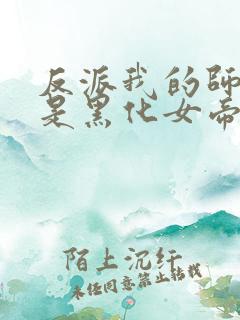 反派我的師
是黑化女帝
陌上沉紆
未经同意禁止转载